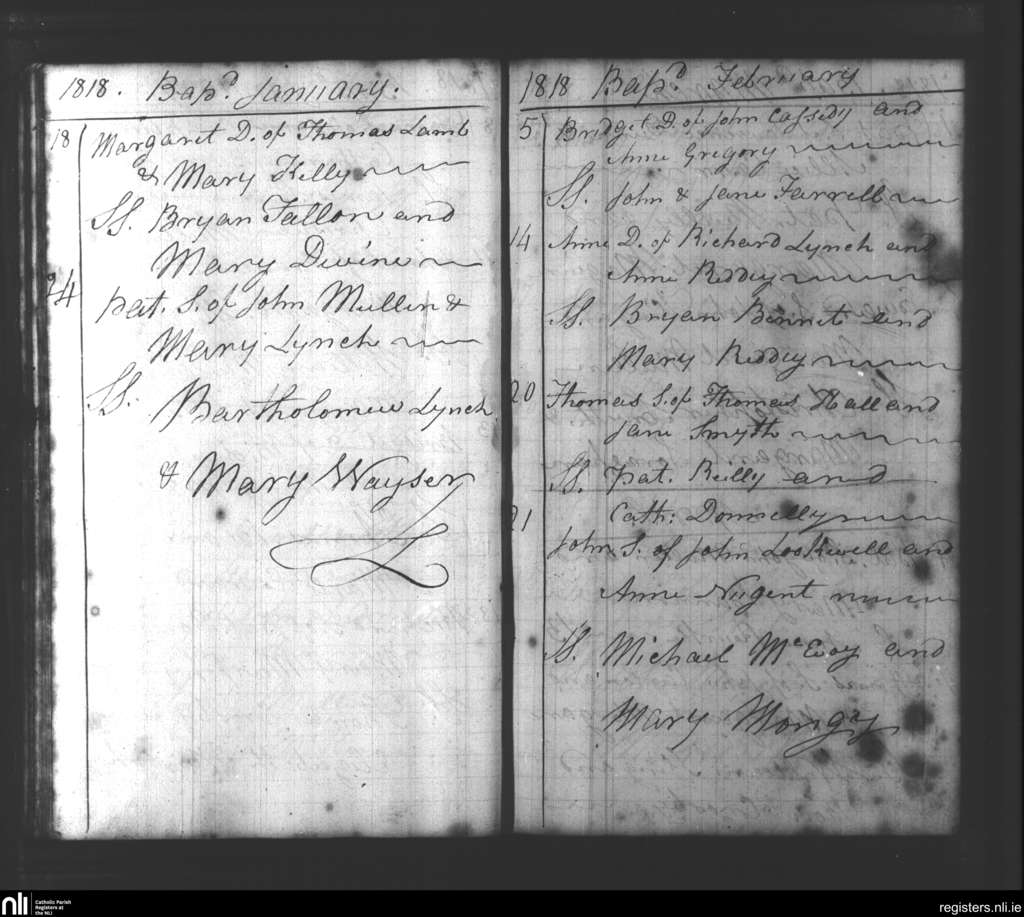 1818. Bapd. January.
18 Margaret D. of Thomas Lamb
& Mary Kelly
SS. Bryan Tallon and
Mary Divine
24 Pat. S. of John Mullin &
Mary Lynch
SS. Bartholomew Lynch
& Mary Wayser
1818 Bapd. February
5 Bridget D. of John Cassedy and
Anne Gregory
SS. John & Jane Farrell
14 Anne D. of Richard Lynch and
Anne Reddy
SS. Bryan Bennet and
Mary Reddy
20 Thomas S. of Thomas Hall and
Jane Smyth
SS. Pat. Reilly and
Cath: Donnelly
21
John S. of John Lookwell and
Anne Nugent
SS. Michael McEvoy and
Mary Mongey
nli Catholic Parish
Registers at
the NLI
registers.nli.ie